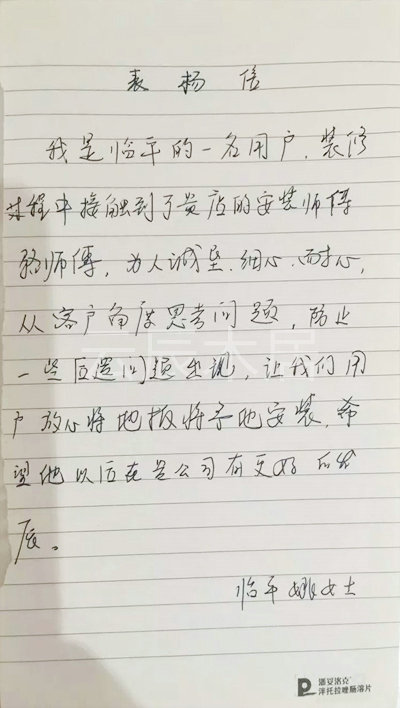 表扬信
我是临平的一名用户,装修
过程中接触到了贵店的安装师傅
骆师傅,为人诚垦.细心.耐心,
从客户角度思考问题,防止
一些后遗问题出现,让我们用
户放心将地板将予地安装,希
望他以后在贵公司有更好的发
展。
临平 姚女士
潘妥洛克
泮托拉唑肠溶片